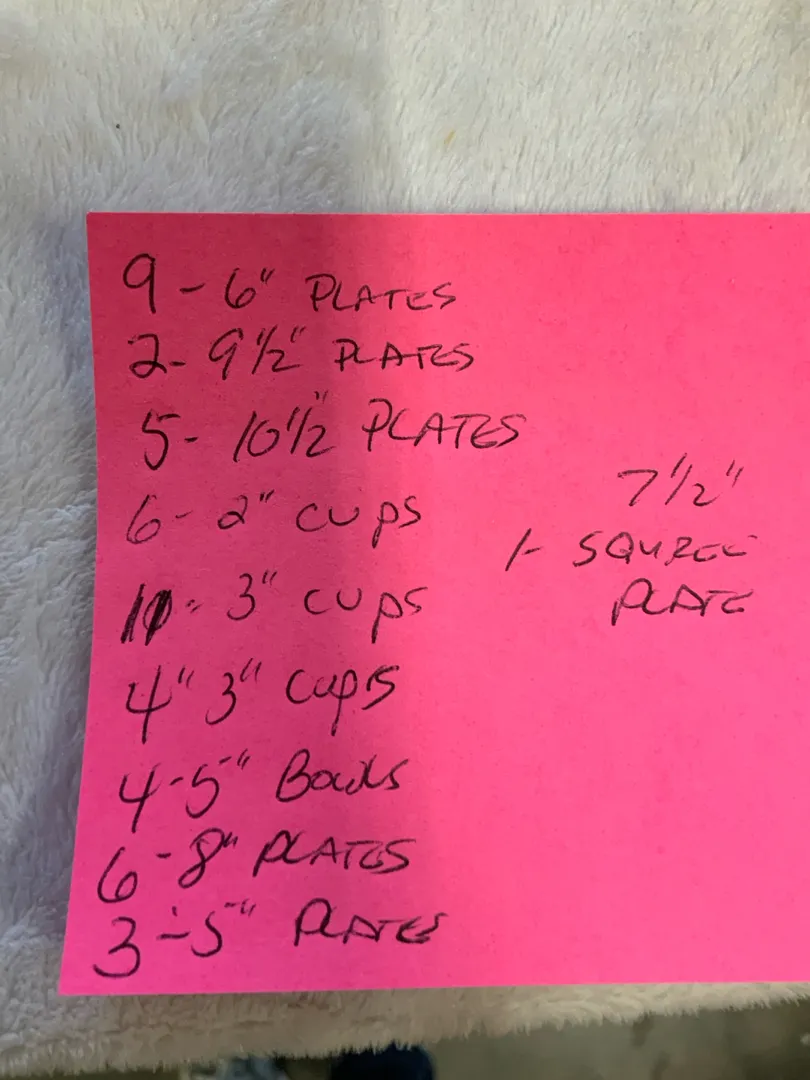 9 - 6" PLATES
2 - 9 1/2" PLATES
5 - 10 1/2" PLATES
6 - 2" CUPS
- 3" CUPS
4" 3" CUPS
4 - 5" Bowls
6 - 8" PLATES
3 - 5" PLATES
7 1/2"
1 -
PLATE